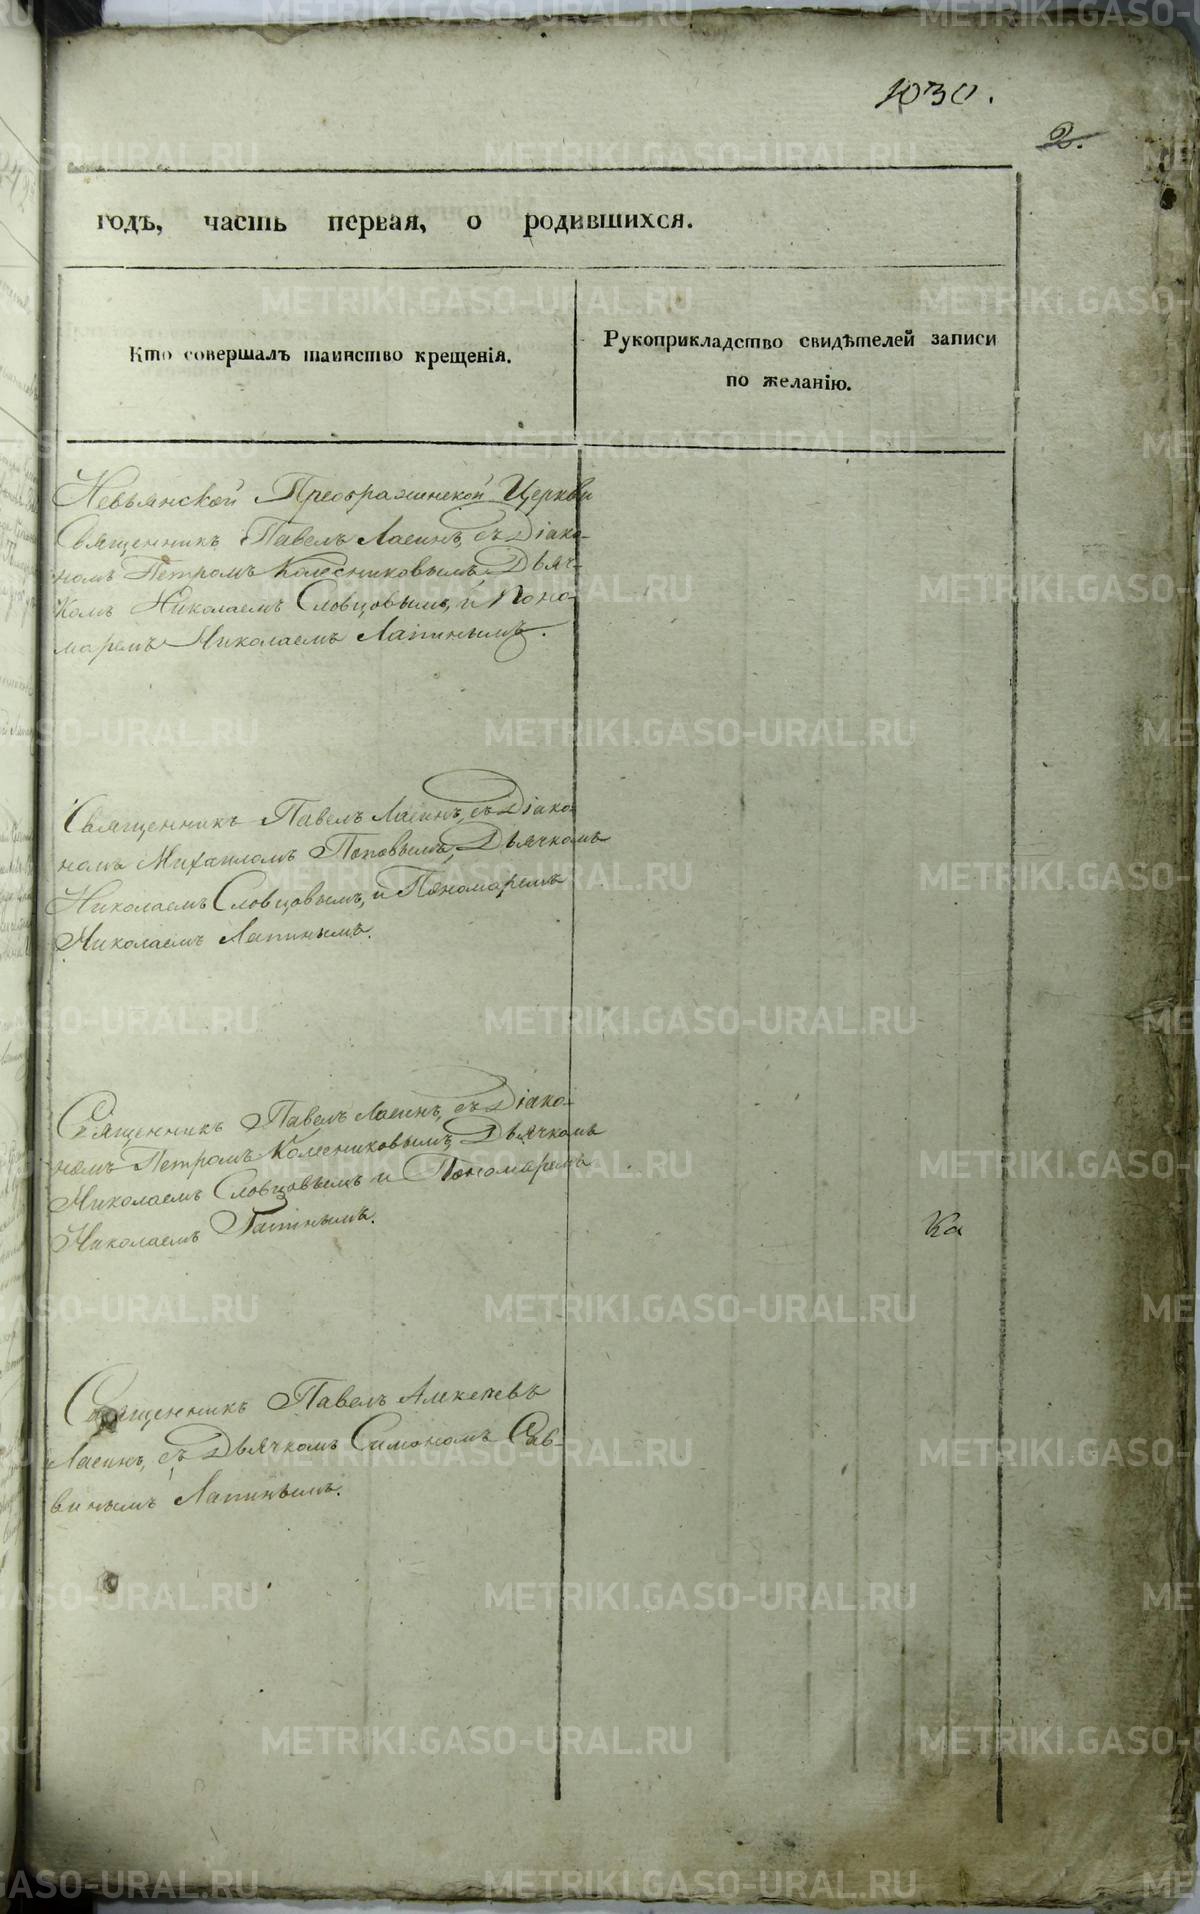 1030.
2.
годъ, часть первая, о родившихся.
Кто совершалъ таинство крещенія.
Рукоприкладство свидѣтелей записи
по желанію.
Невьянской Преображенской Церкви
Священникъ Павелъ Ласинъ, съ Діако-
номъ Петромъ Колесниковымъ, Дьяч-
комъ Николаемъ Словцовымъ, и Поно-
маремъ Николаемъ Лапинымъ.
Священникъ Павелъ Ласинъ, съ Діако-
номъ Михаиломъ Поповымъ, Дьячкомъ
Николаемъ Словцовымъ, и Пономаремъ
Николаемъ Лапинымъ.
Священникъ Павелъ Ласинъ, съ Діако-
номъ Петромъ Колесниковымъ, Дьячкомъ
Николаемъ Словцовымъ и Пономаремъ
Николаемъ Лапинымъ.
Ка
Священникъ Павелъ Алексѣевъ
Ласинъ, съ Дьячкомъ Симономъ Сав-
винымъ Лапинымъ.
METRIKI.GASO-URAL.RU